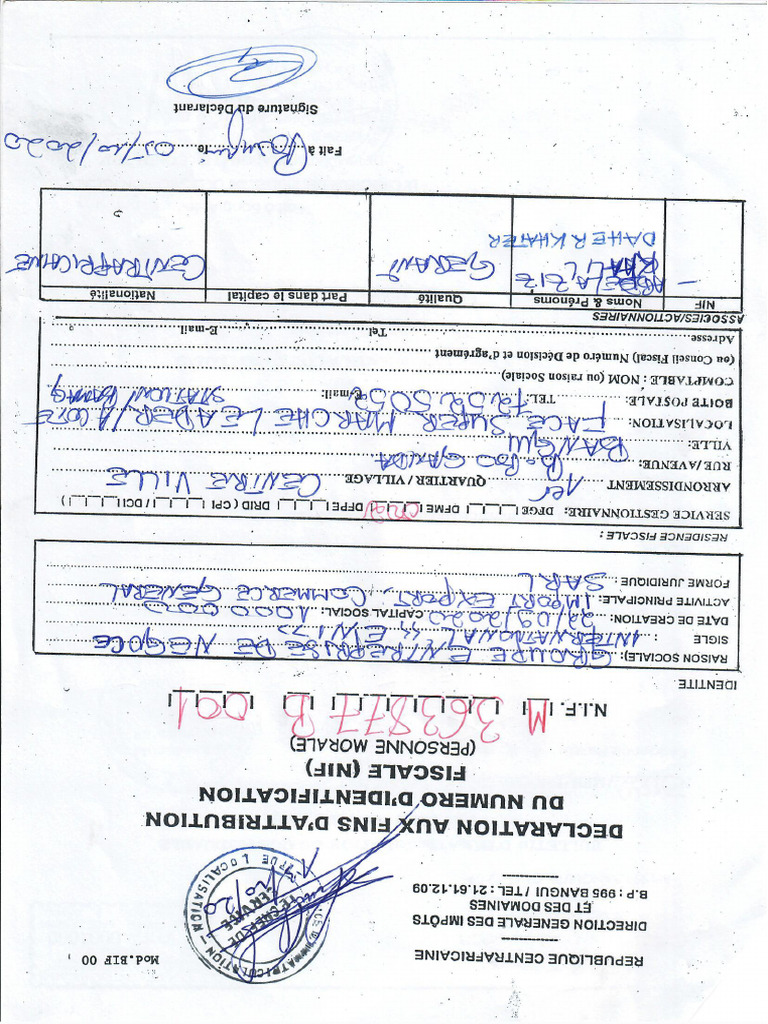 REPUBLIQUE CENTRAFRICAINE
Mod.BIF 00
DIRECTION GENERALE DES IMPÔTS
ET DES DOMAINES
B.P : 995 BANGUI / TEL : 21.61.12.09
IMMATRICULATION
DE LOCALISATION
LE CHEF DE
SERVICE
DECLARATION AUX FINS D'ATTRIBUTION
DU NUMERO D'IDENTIFICATION
FISCALE (NIF)
(PERSONNE MORALE)
N.I.F. M 363877 B 001
IDENTITE
RAISON SOCIALE): GROUPE ENTREPRISE DE NEGOCE
SIGLE : INTERNATIONAL "ENI"
DATE DE CREATION: 22/09/2020 CAPITAL SOCIAL: 1.000 000
ACTIVITE PRINCIPALE: IMPORT EXPORT, COMMERCE GENERAL
FORME JURIDIQUE : SARL
RESIDENCE FISCALE :
SERVICE GESTIONNAIRE: DFGE DFME DFPE DRID ( CPI / DCI )
ARRONDISSEMENT 1er QUARTIER / VILLAGE CENTRE VILLE
RUE /AVENUE: B. BOGANDA
VILLE: BANGUI
LOCALISATION: FACE SUPER MARCHE LEADER / A COTE
BOITE POSTALE: TEL: 72 52 50 58 E/mail: STATION BAMAG
COMPTABLE : NOM (ou raison Sociale)
(ou Conseil Fiscal) Numéro de Décision et d'agrément
Adresse Tel E-mail
ASSOCIES/ACTIONNAIRES
NIF Noms & Prénoms Qualité Part dans le capital Nationalité
— ABDELAZIZ KHALIL GERANT CENTRAFRICAINE
DAHER KHATER
Fait à Bangui le 05/10/2020
Signature du Déclarant